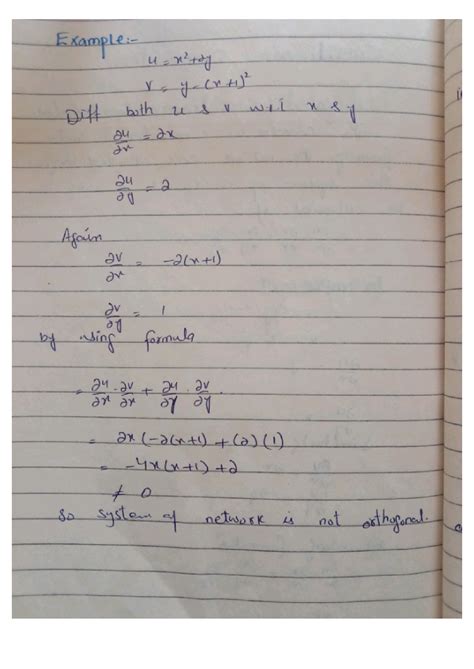 Example:-
u = x² + 2y
v = y - (x + 1)²
Diff both u & v w.r.t x & y
∂u/∂x = 2x
∂u/∂y = 2
Again
∂v/∂x = -2(x+1)
∂v/∂y = 1
by using formula
= ∂u/∂x · ∂v/∂x + ∂u/∂y · ∂v/∂y
= 2x (-2(x+1) + (2) (1)
= -4x(x+1) + 2
≠ 0
So system of network is not orthogonal.